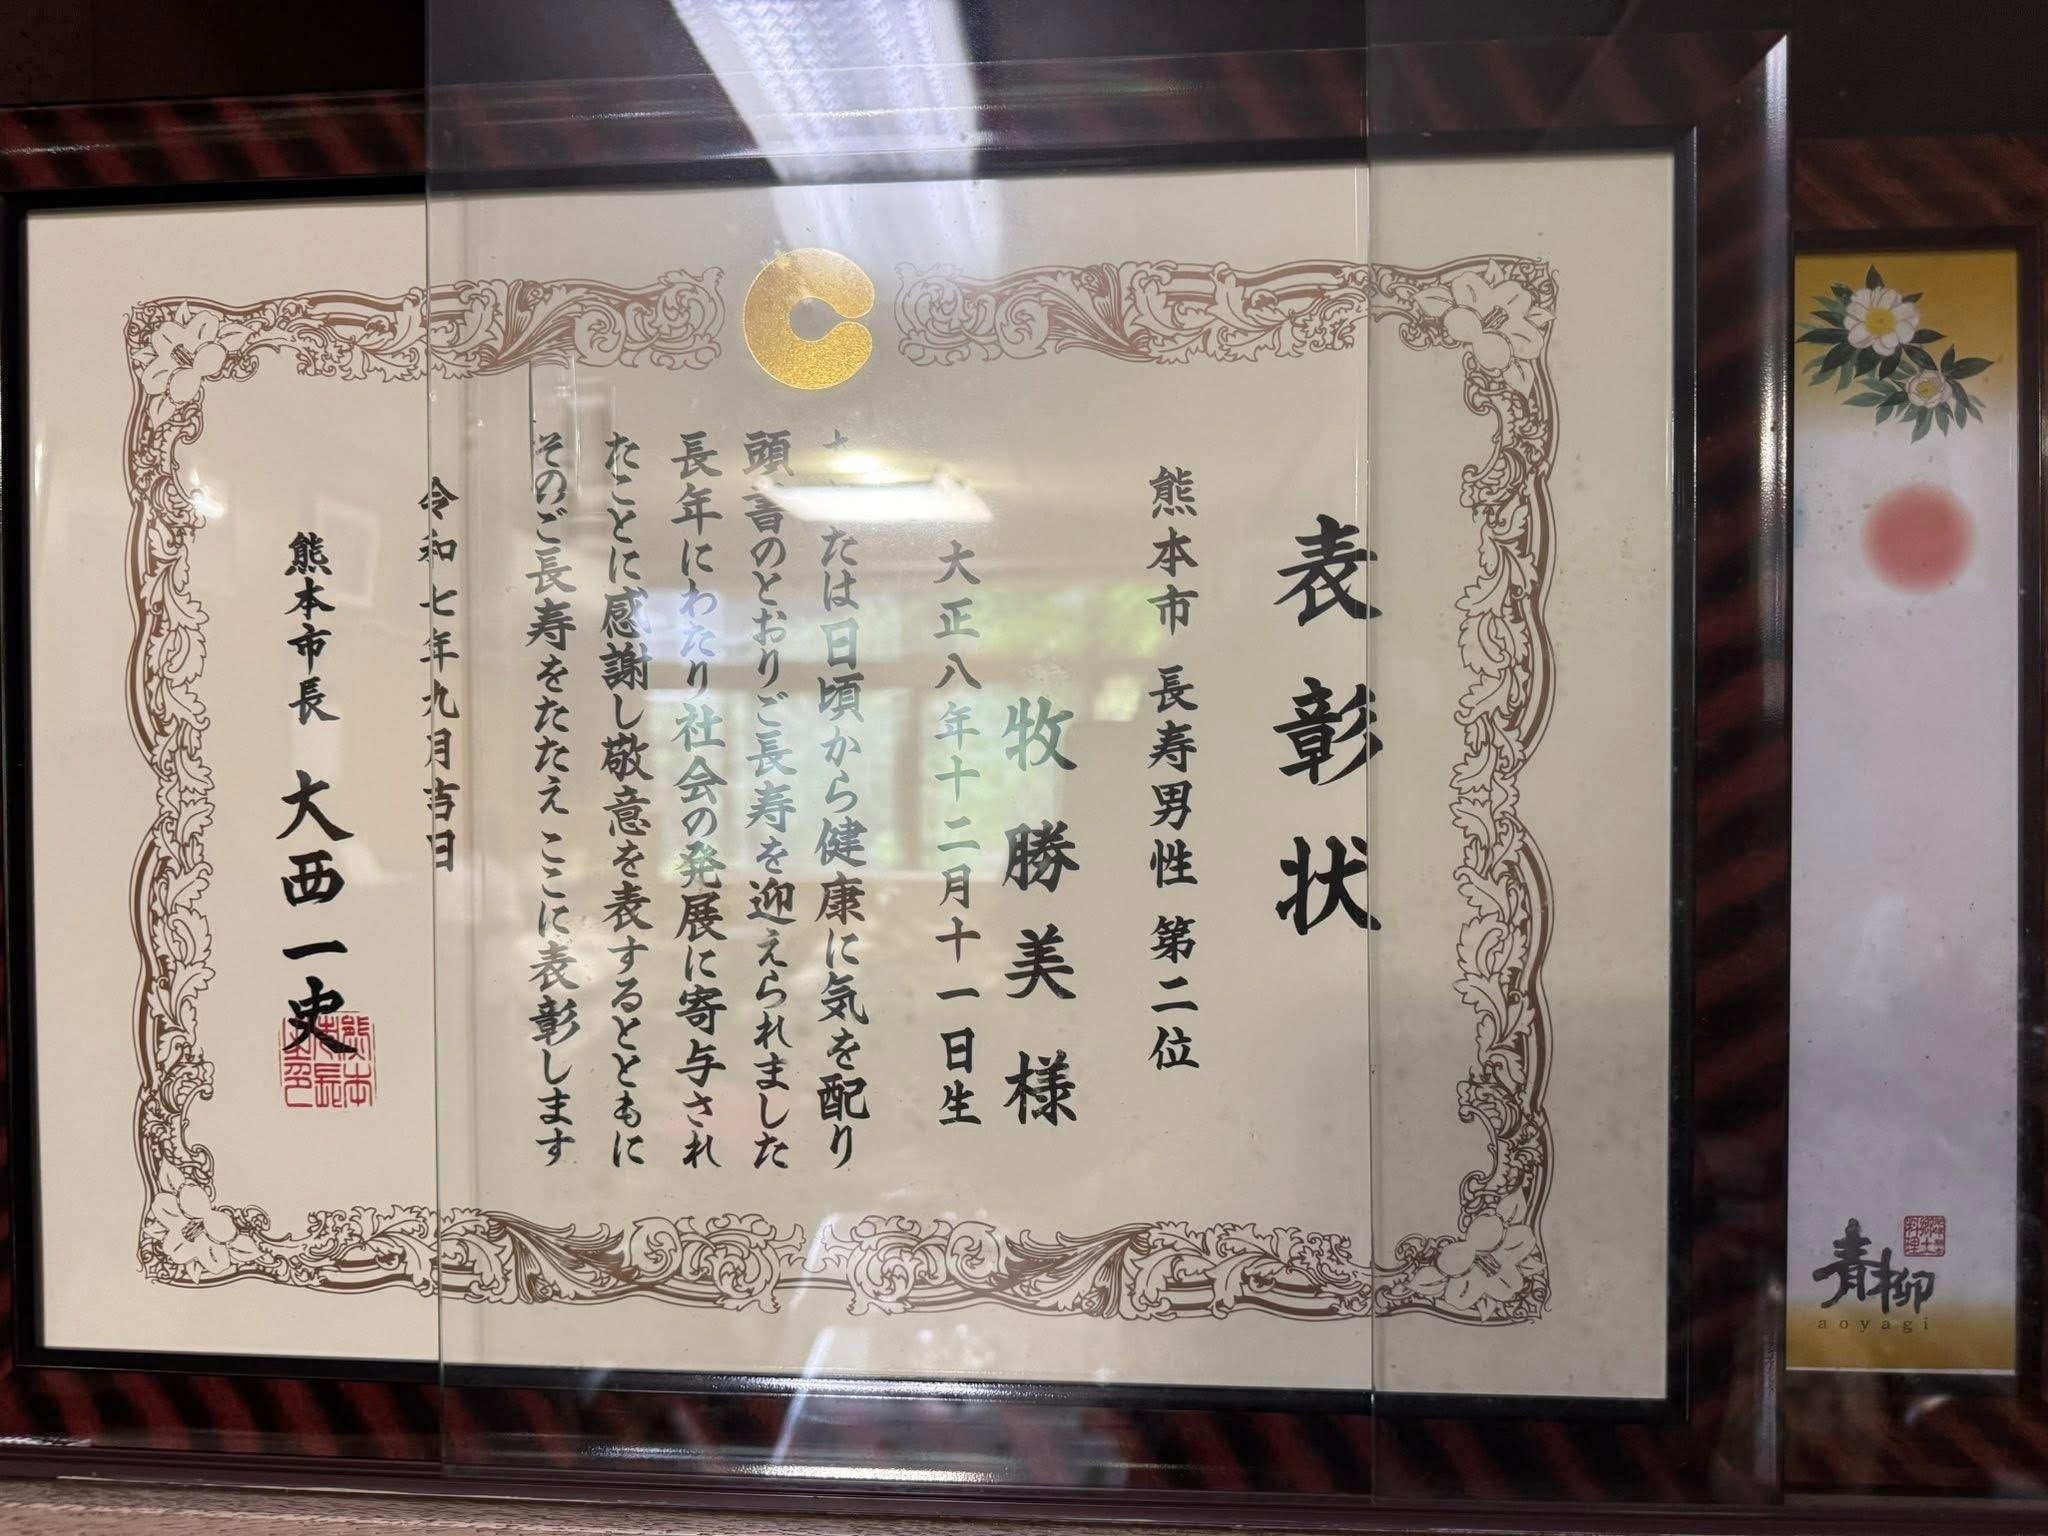 表彰状
熊本市 長寿男性 第二位
牧勝美様
大正八年十二月十一日生
たは日頃から健康に気を配り
頭書のとおりご長寿を迎えられました
長年にわたり社会の発展に寄与され
たことに感謝し敬意を表するとともに
そのご長寿をたたえここに表彰します
令和七年九月吉日
熊本市長 大西一史
青柳
aoyagi